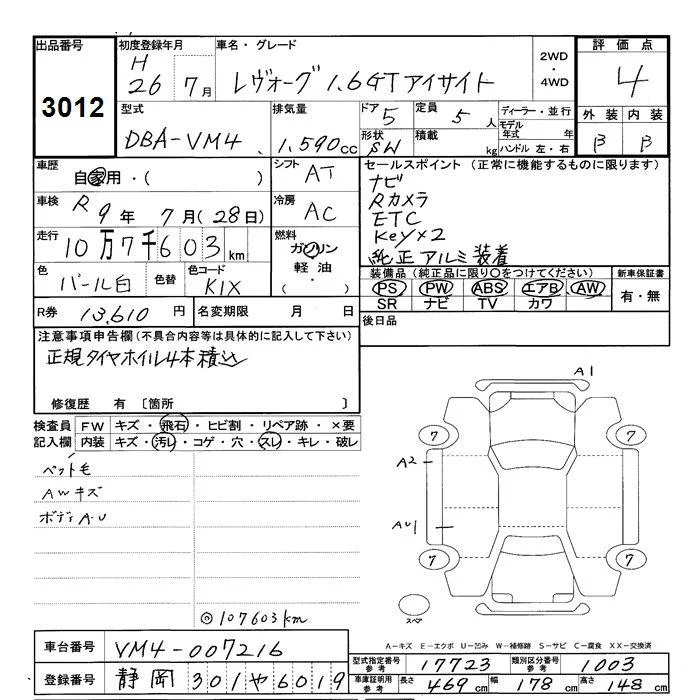 出品番号 3012
初度登録年月 H 26年 7月
車名・グレード レヴォーグ 1.6GTアイサイト
2WD・4WD
評価点 4
型式 DBA-VM4
排気量 1,590cc
ドア 5
形状 SW
定員 5人
積載 kg
ディーラー・並行
モデル年式 年
ハンドル 左・右
外装 B
内装 B
車歴 自家用・( )
シフト AT
セールスポイント(正常に機能するものに限ります)
ナビ
Rカメラ
ETC
Key×2
純正アルミ装着
車検 R 9年 7月(28日)
冷房 AC
走行 10万7千603km
燃料 ガソリン・軽油・( )
色 パール白
色替
色コード K1X
装備品(純正品に限り○をつけてください)
PS PW ABS エアB AW
SR ナビ TV カワ
新車保証書 有・無
R券 13,610円
名変期限 月 日
後日品
注意事項申告欄(不具合内容等は具体的に記入して下さい)
正規タイヤホイル4本積込
修復歴 有〔箇所 〕
検査員記入欄
FW キズ・飛石・ヒビ割・リペア跡・×要
内装 キズ・汚レ・コゲ・穴・スレ・キレ・破レ
ペット毛
AWキズ
ボディA.U
◎107603km
A1
7 7
A2
AU1
7 7
スペア
A-キズ E-エクボ U-凹み W-補修跡 S-サビ C-腐食 XX-交換済
車台番号 VM4-007216
型式指定番号参考 17723
類別区分番号参考 1003
登録番号 静岡 301や6019
車庫証明用参考 長さ 469cm 幅 178cm 高さ 148cm